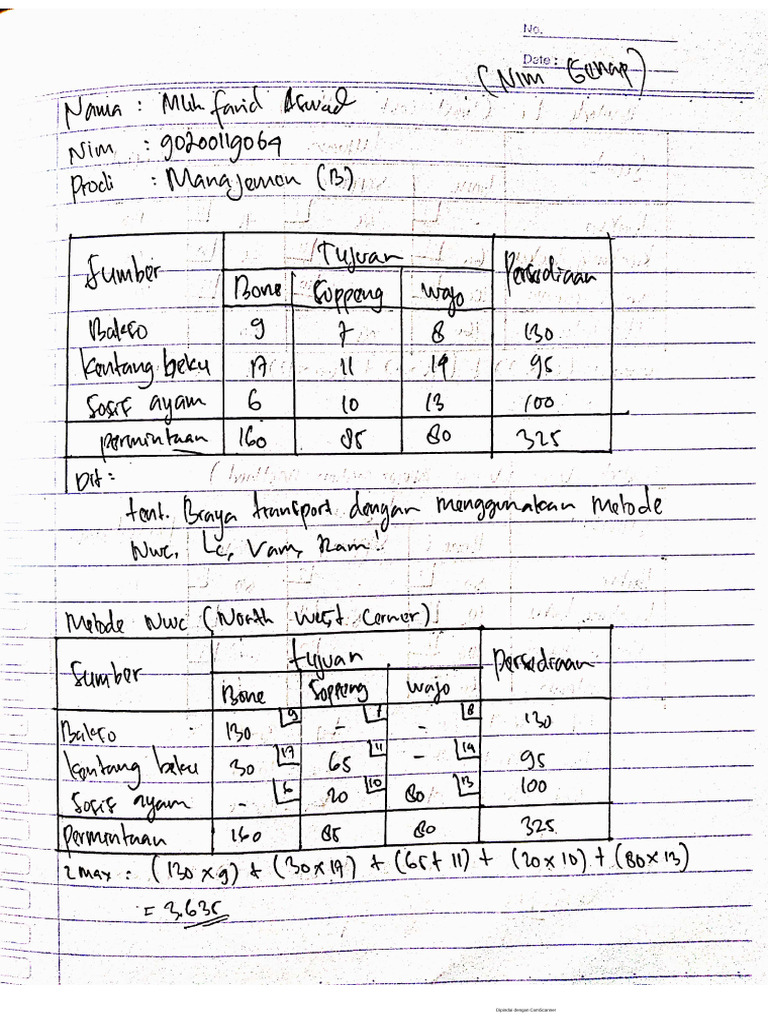 No.
Date :
(Nim Genap)
Nama : Muh farid Aswad
Nim : 90200119064
Prodi : Manajemen (B)
Sumber Tujuan Persediaan
Bone Soppeng Wajo
Bakso 9 7 8 130
Kentang beku 17 11 19 95
Sosis ayam 6 10 13 100
permintaan 160 85 80 325
Dit :
tent. Biaya transport dengan menggunakan Metode
Nwc, Lc, Vam, Ram!
Metode Nwc (North West Corner)
Sumber tujuan Persediaan
Bone Soppeng Wajo
Bakso 130 9 - 7 - 8 130
kentang beku 30 17 65 11 - 19 95
Sosis ayam - 6 20 10 80 13 100
permintaan 160 85 80 325
Z max : (130 x 9) + (30 x 17) + (65 + 11) + (20 x 10) + (80 x 13)
= 3.635
Dipindai dengan CamScanner